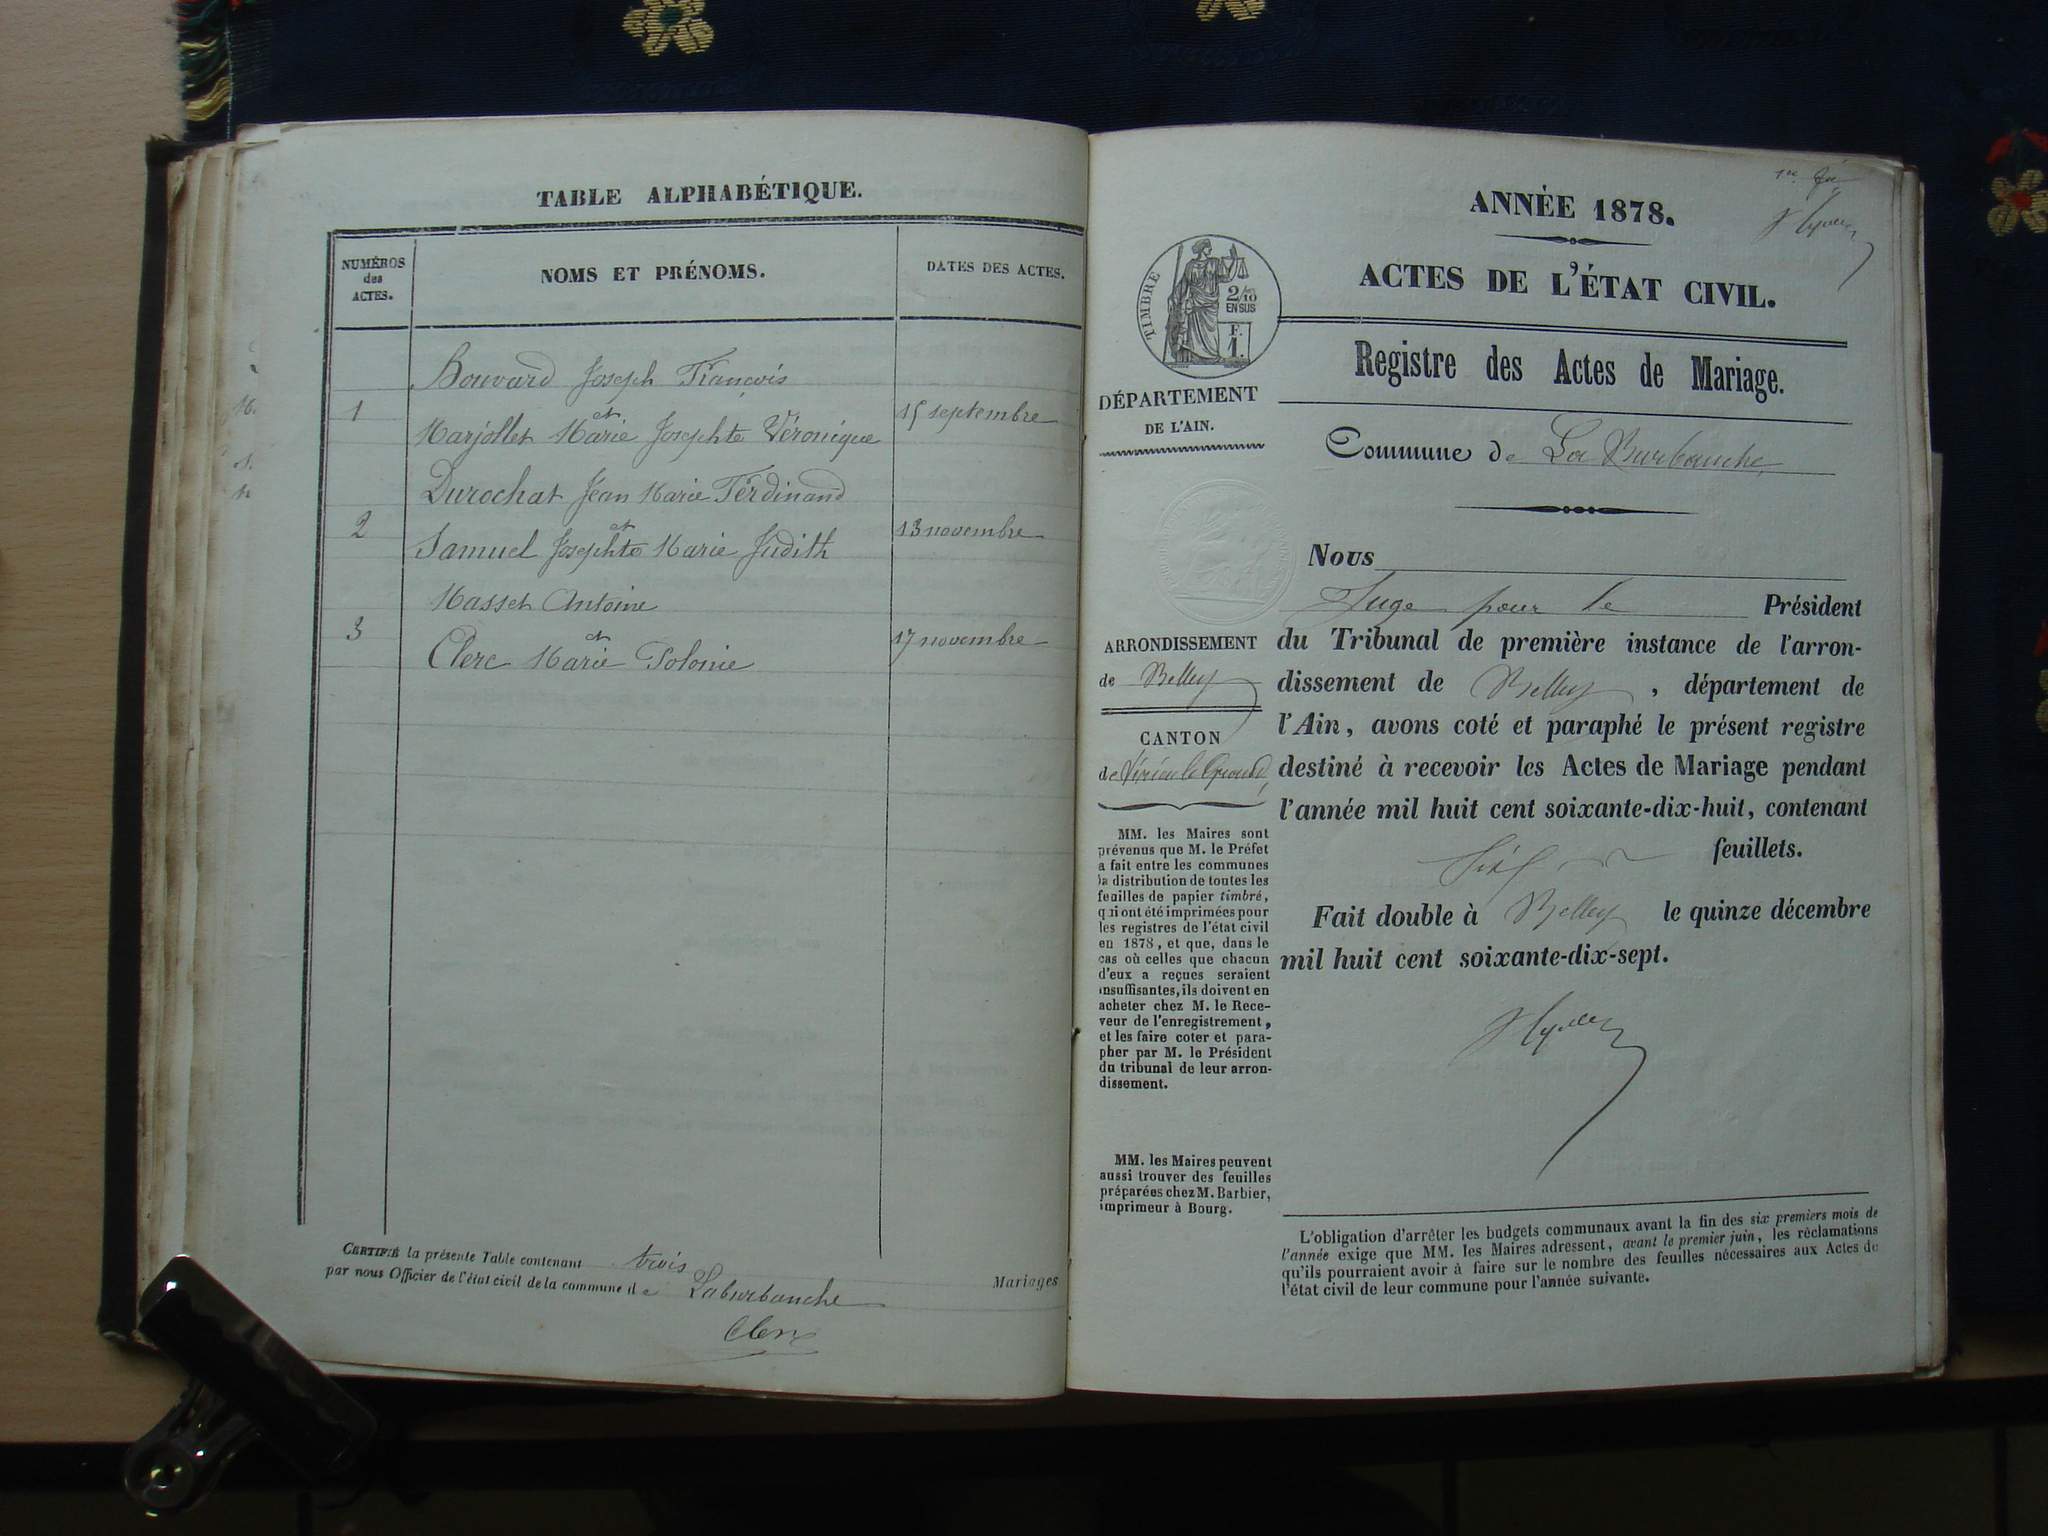 TABLE ALPHABÉTIQUE.
NUMÉROS
des
ACTES.
NOMS ET PRÉNOMS.
DATES DES ACTES.
Bouvard Joseph François
1
et
15 septembre
Marjollet Marie Josephte Véronique
Durochat Jean Marie Ferdinand
2
et
13 novembre
Samuel Josephte Marie Judith
Masset Antoine
3
et
17 novembre
Clerc Marie Polonie
CERTIFIÉ la présente Table contenant trois Mariages
par nous Officier de l'état civil de la commune de Laburbanche
Clerc
ANNÉE 1878.
ACTES DE L'ÉTAT CIVIL.
TIMBRE
2/10
EN SUS
F.
1.
Registre des Actes de Mariage.
DÉPARTEMENT
DE L'AIN.
Commune de La Burbanche
Nous
Juge pour le Président
du Tribunal de première instance de l'arron-
dissement de Belley, département de
l'Ain, avons coté et paraphé le présent registre
destiné à recevoir les Actes de Mariage pendant
l'année mil huit cent soixante-dix-huit, contenant
feuillets.
Fait double à Belley le quinze décembre
mil huit cent soixante-dix-sept.
ARRONDISSEMENT
de Belley
CANTON
de Virieu le Grand
MM. les Maires sont
prévenus que M. le Préfet
a fait entre les communes
la distribution de toutes les
feuilles de papier timbré,
qui ont été imprimées pour
les registres de l'état civil
en 1878, et que, dans le
cas où celles que chacun
d'eux a reçues seraient
insuffisantes, ils doivent en
acheter chez M. le Rece-
veur de l'enregistrement,
et les faire coter et para-
pher par M. le Président
du tribunal de leur arron-
dissement.
MM. les Maires peuvent
aussi trouver des feuilles
préparées chez M. Barbier,
imprimeur à Bourg.
L'obligation d'arrêter les budgets communaux avant la fin des six premiers mois de
l'année exige que MM. les Maires adressent, avant le premier juin, les réclamations
qu'ils pourraient avoir à faire sur le nombre des feuilles nécessaires aux Actes de
l'état civil de leur commune pour l'année suivante.